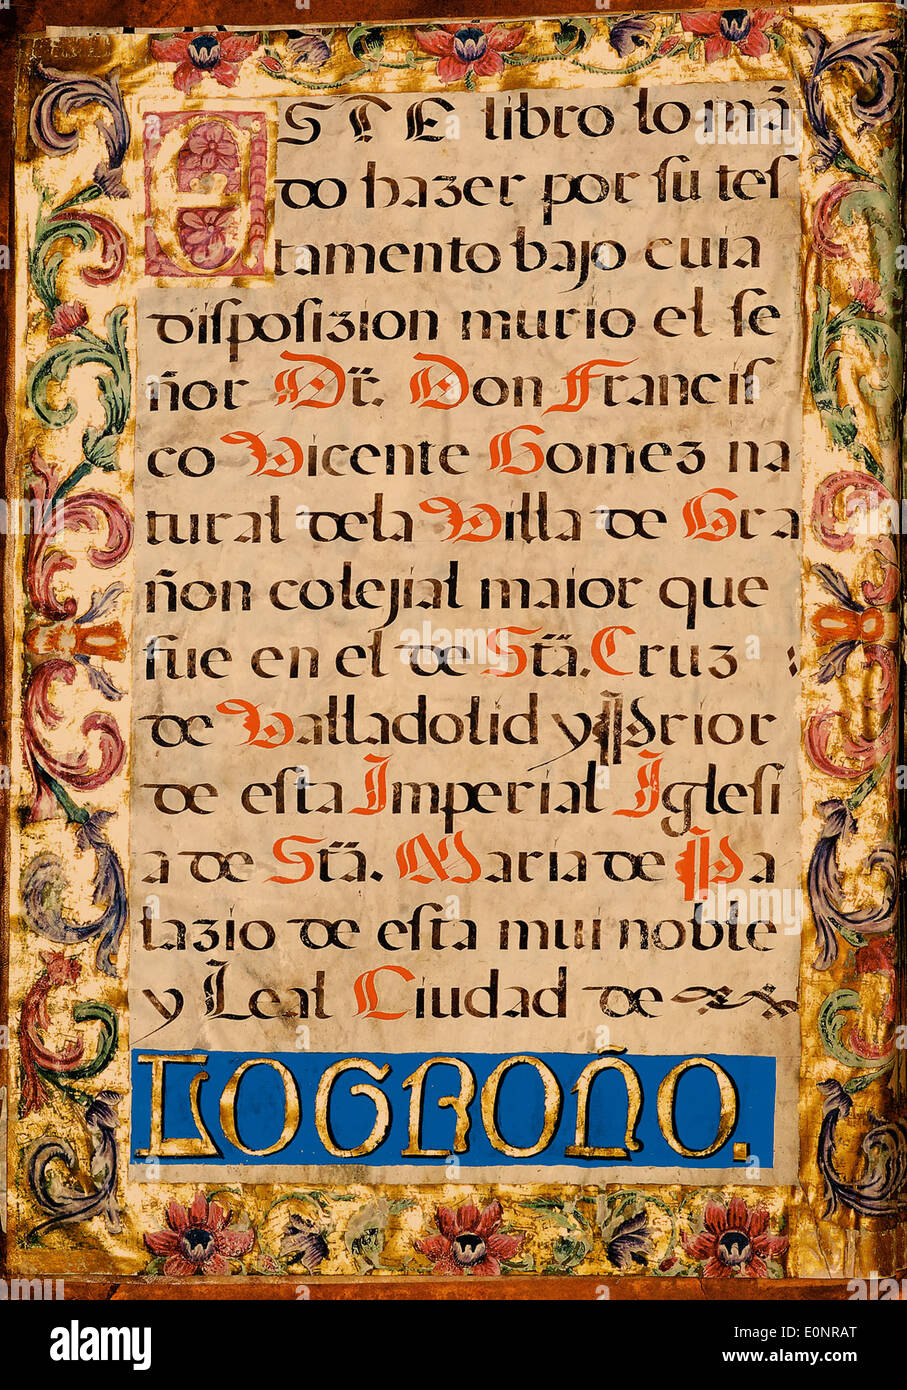 ESTE libro lo mã
do hazer por su tes
tamento bajo cuia
disposizion murio el se
ñor Dr. Don Francis
co Vicente Gomez na
tural de la Villa de Gra
ñon colejial maior que
fue en el de Sta. Cruz :
de Valladolid y Prior
de esta Imperial Iglesi
a de Sta. Maria de Pa
lazio de esta mui noble
y Leal Ciudad de
LOGROÑO.
alamy
Image ID: E0NRAT
www.alamy.com